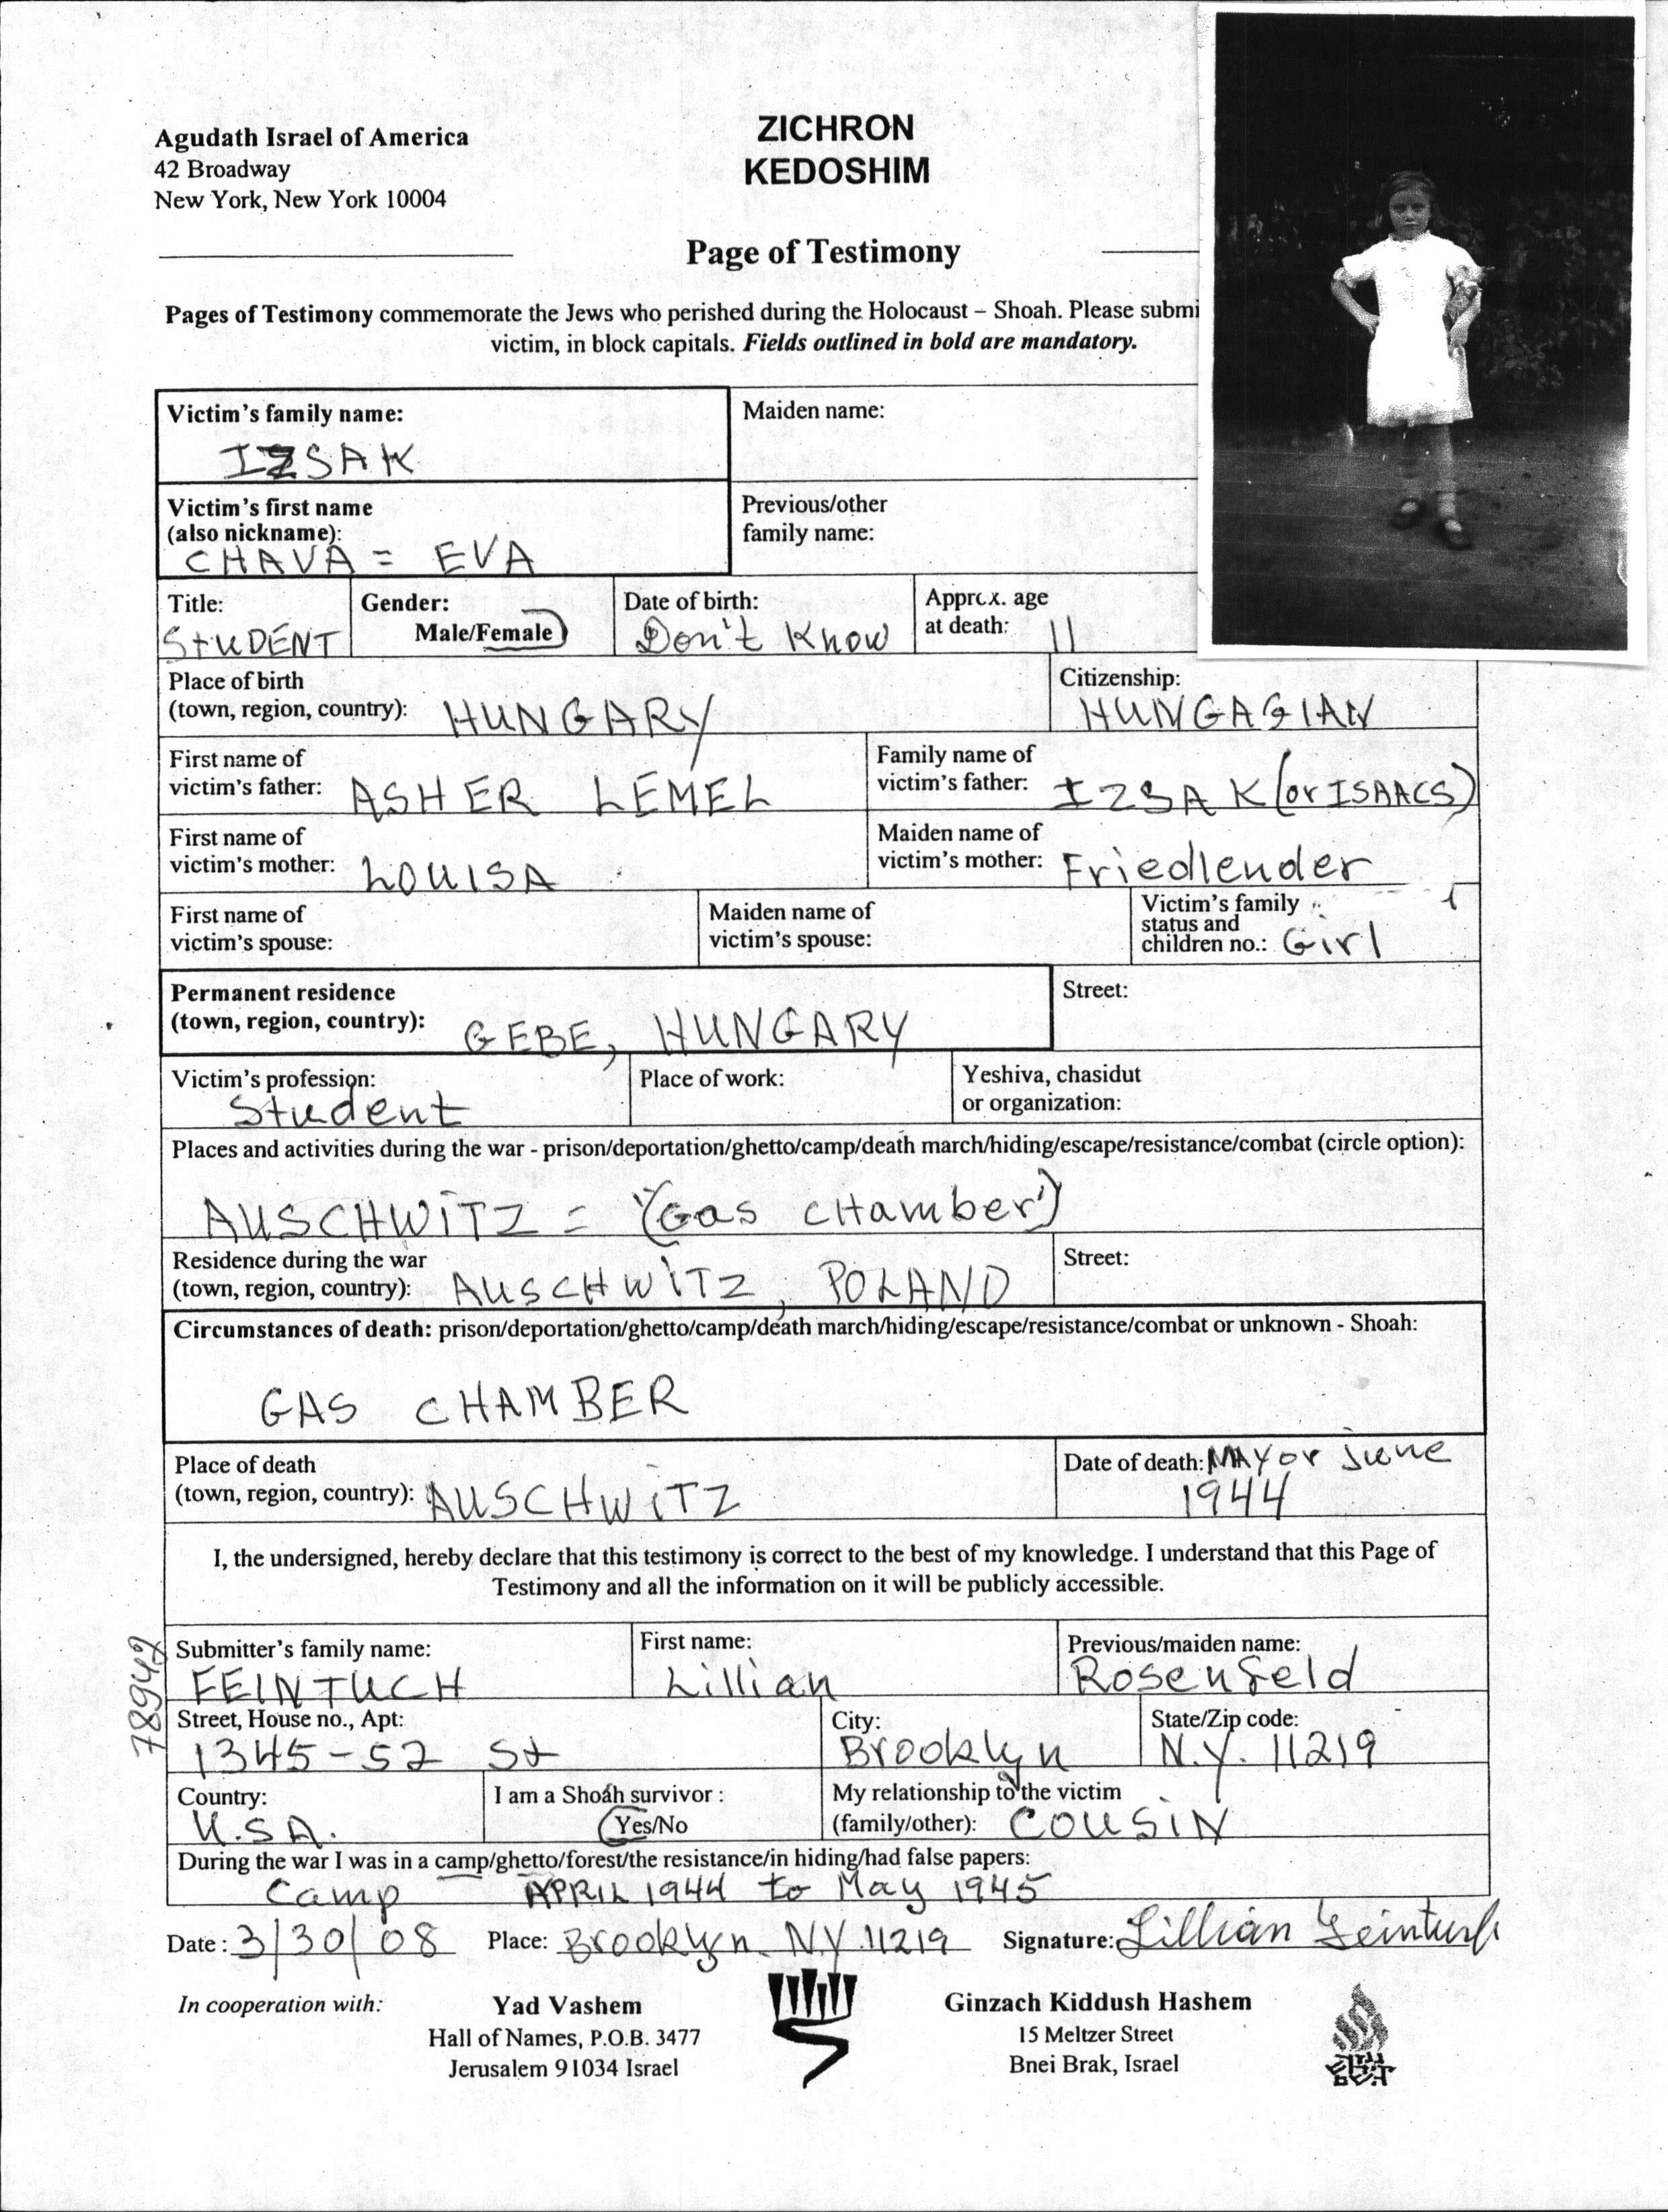 Agudath Israel of America
42 Broadway
New York, New York 10004
ZICHRON
KEDOSHIM
Page of Testimony
Pages of Testimony commemorate the Jews who perished during the Holocaust – Shoah. Please submi
victim, in block capitals. Fields outlined in bold are mandatory.
Victim's family name:
IZSAK
Maiden name:
Victim's first name
(also nickname):
CHAVA = EVA
Previous/other
family name:
Title:
STUDENT
Gender:
Male/Female
Date of birth:
Don't Know
Approx. age
at death: 11
Place of birth
(town, region, country): HUNGARY
Citizenship:
HUNGAGIAN
First name of
victim's father: ASHER LEMEL
Family name of
victim's father: IZSAK (or ISAACS)
First name of
victim's mother: LOUISA
Maiden name of
victim's mother: Friedlender
First name of
victim's spouse:
Maiden name of
victim's spouse:
Victim's family
status and
children no.: Girl
Permanent residence
(town, region, country): GEBE, HUNGARY
Street:
Victim's profession:
Student
Place of work:
Yeshiva, chasidut
or organization:
Places and activities during the war - prison/deportation/ghetto/camp/death march/hiding/escape/resistance/combat (circle option):
AUSCHWITZ = "(Gas CHamber")
Residence during the war
(town, region, country): AUSCHWITZ, POLAND
Street:
Circumstances of death: prison/deportation/ghetto/camp/death march/hiding/escape/resistance/combat or unknown - Shoah:
GAS CHAMBER
Place of death
(town, region, country): AUSCHWITZ
Date of death: MAY or June
1944
I, the undersigned, hereby declare that this testimony is correct to the best of my knowledge. I understand that this Page of
Testimony and all the information on it will be publicly accessible.
78942
Submitter's family name:
FEINTUCH
First name:
Lillian
Previous/maiden name:
Rosenfeld
Street, House no., Apt:
1345-52 St
City:
Brooklyn
State/Zip code:
N.Y. 11219
Country:
U.S.A.
I am a Shoah survivor :
Yes/No
My relationship to the victim
(family/other): COUSIN
During the war I was in a camp/ghetto/forest/the resistance/in hiding/had false papers:
Camp APRIL 1944 to May 1945
Date: 3/30/08 Place: Brooklyn. N.Y. 11219 Signature: Lillian Feintuch
In cooperation with:
Yad Vashem
Hall of Names, P.O.B. 3477
Jerusalem 91034 Israel
Ginzach Kiddush Hashem
15 Meltzer Street
Bnei Brak, Israel